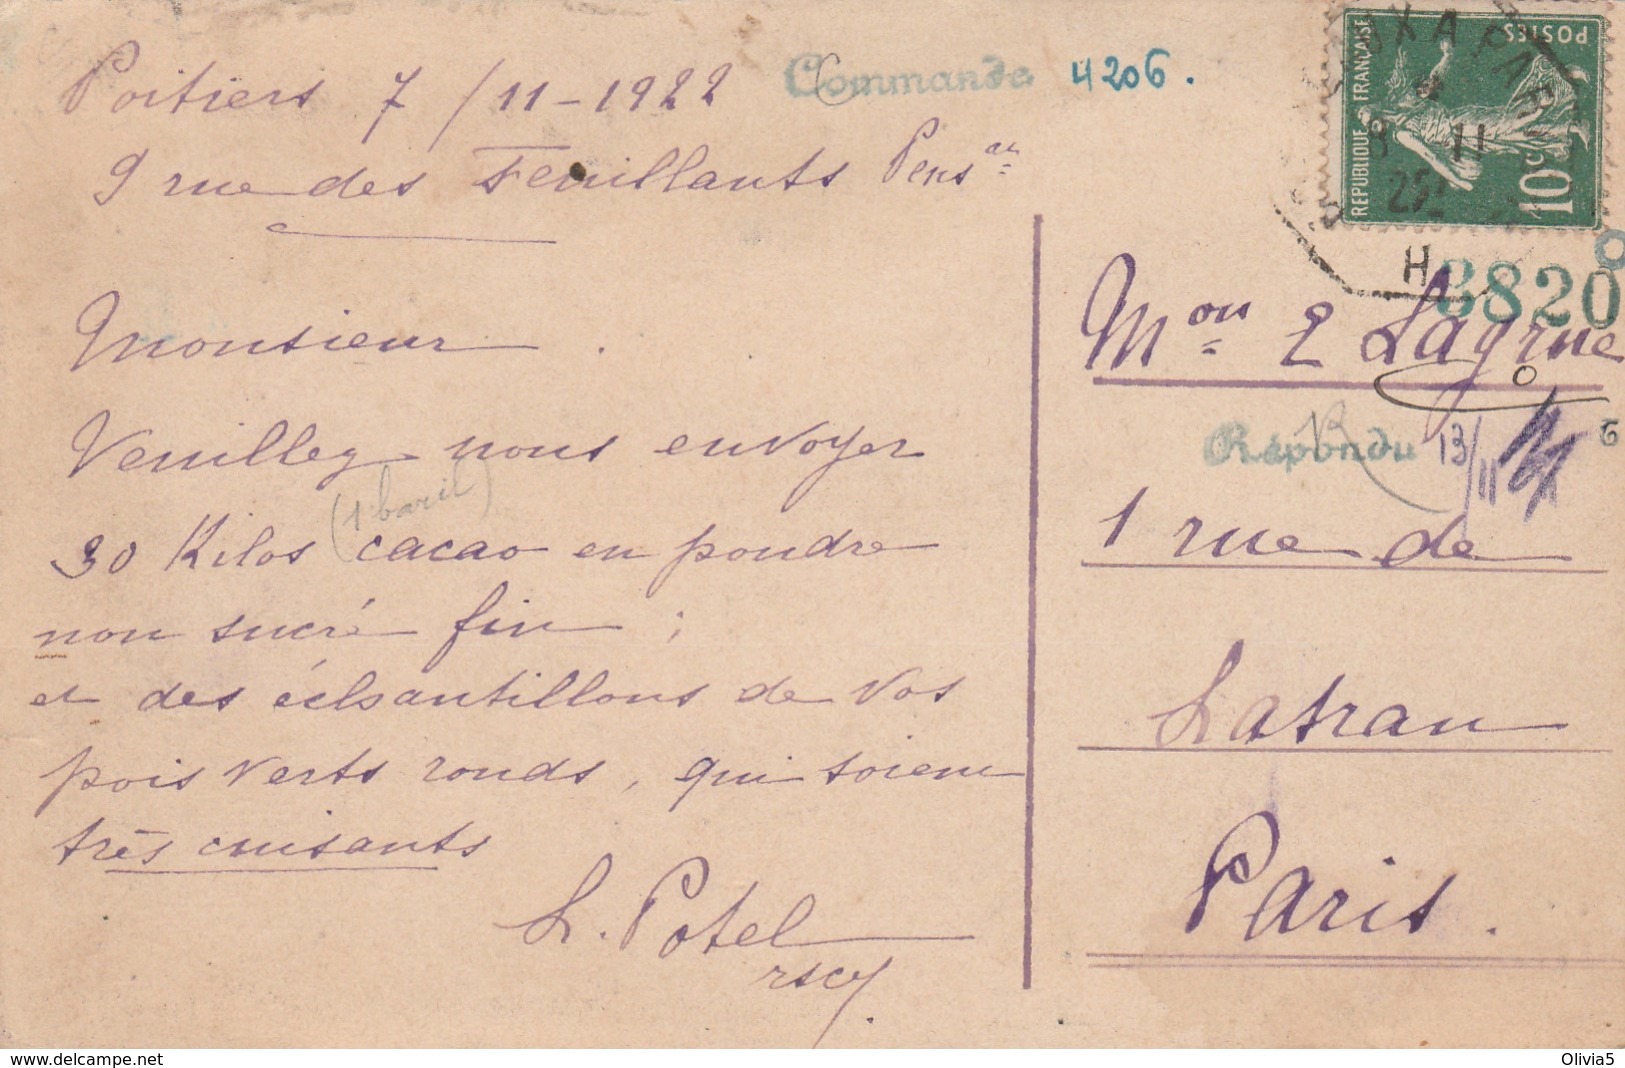 Poitiers 7/11-1922
9 rue des Feuillants Pens^at
Monsieur.
Veuillez nous envoyer
30 Kilos (1 baril) cacao en poudre
non sucré fin ;
et des échantillons de vos
pois verts ronds, qui soient
très cuisants
L. Potel
rscj.
Commande 4206.
RÉPUBLIQUE FRANÇAISE
POSTES
10c
8 11
22
H
3820
M^on L Lagrue
Répondu 13/11
1 rue de
Latran
Paris.
www.delcampe.net
Olivia5